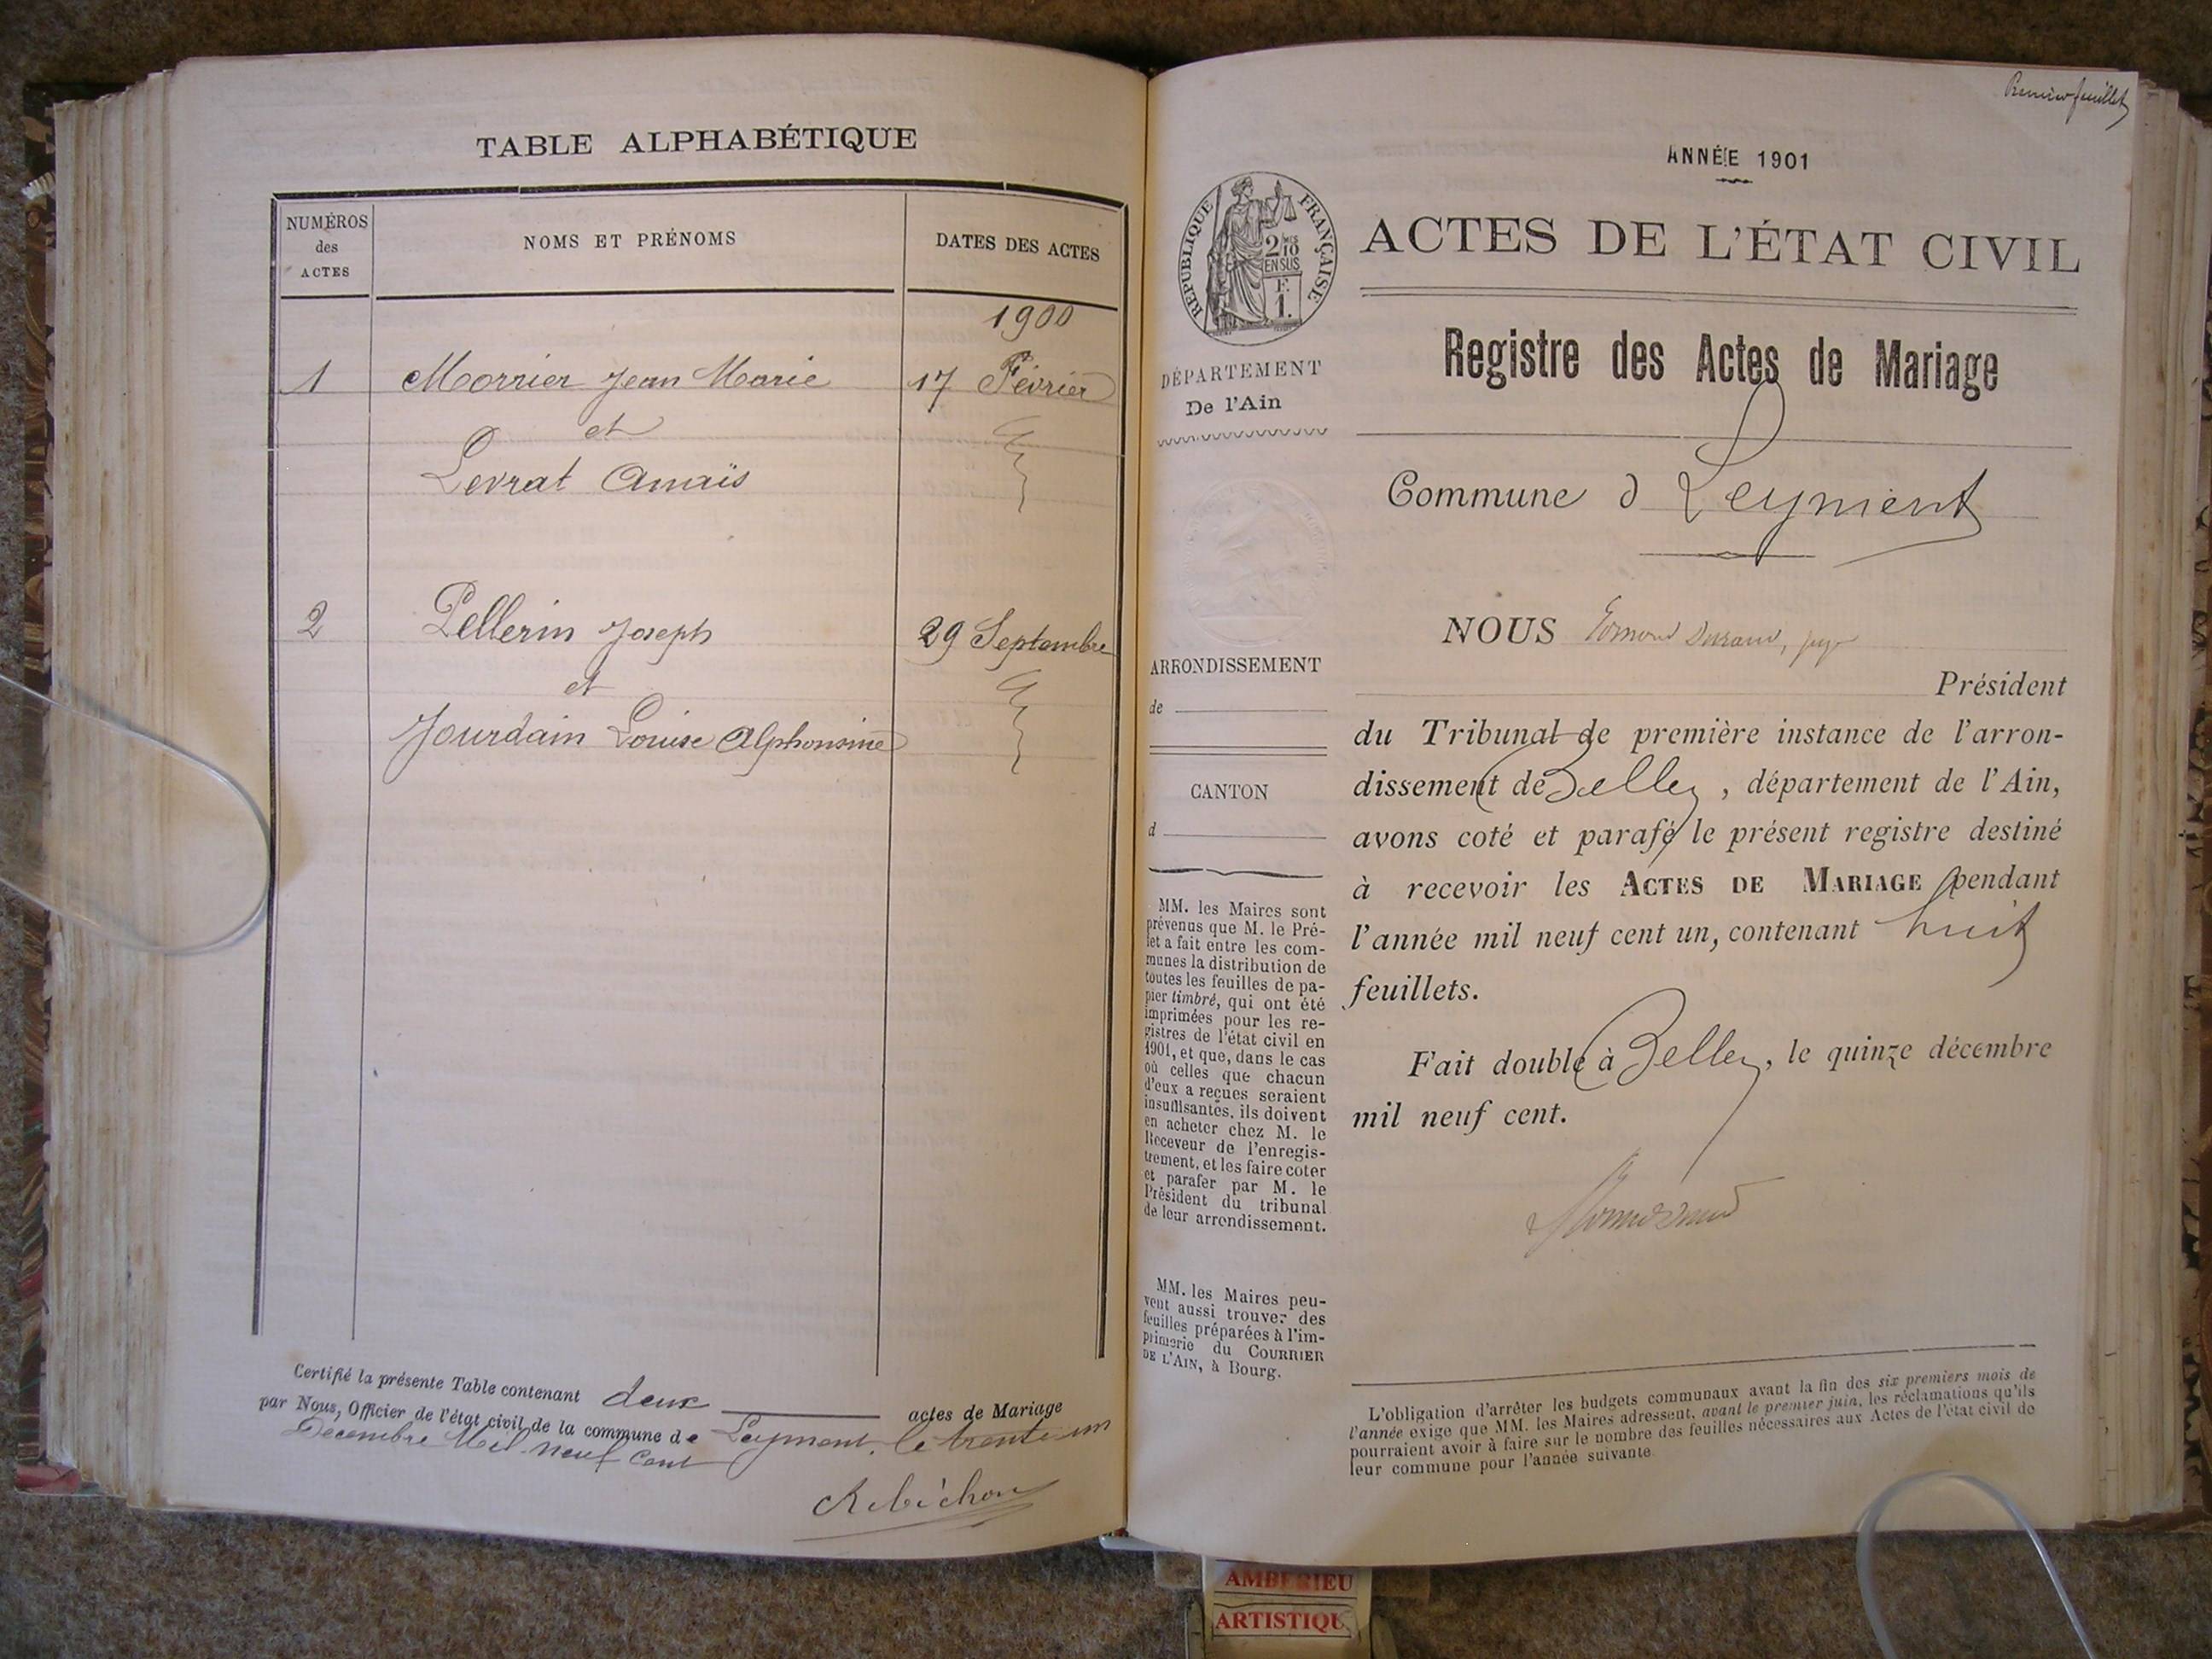 TABLE ALPHABÉTIQUE
NUMÉROS
des
ACTES
NOMS ET PRÉNOMS
DATES DES ACTES
1900
1 Morrier Jean Marie 17 Février
et
Levrat Anaïs
2 Pellerin Joseph 29 Septembre
et
Jourdain Louise Alphonsine
Certifié la présente Table contenant deux actes de Mariage
par Nous, Officier de l'état civil de la commune de Leyment, le trente un
Décembre Mil neuf Cent
Rebichon
Premier feuillet
ANNÉE 1901
RÉPUBLIQUE FRANÇAISE
2/10 MES
EN SUS
F.
1.
ACTES DE L'ÉTAT CIVIL
Registre des Actes de Mariage
DÉPARTEMENT
De l'Ain
Commune d Leyment
NOUS Edmond Durand, juge
Président
du Tribunal de première instance de l'arron-
dissement de Belley, département de l'Ain,
avons coté et parafé le présent registre destiné
à recevoir les ACTES DE MARIAGE pendant
l'année mil neuf cent un, contenant huit
feuillets.
Fait double à Belley, le quinze décembre
mil neuf cent.
ARRONDISSEMENT
de
CANTON
d
MM. les Maires sont
prévenus que M. le Pré-
fet a fait entre les com-
munes la distribution de
toutes les feuilles de pa-
pier timbré, qui ont été
imprimées pour les re-
gistres de l'état civil en
1901, et que, dans le cas
où celles que chacun
d'eux a reçues seraient
insuffisantes, ils doivent
en acheter chez M. le
Receveur de l'enregis-
trement, et les faire coter
et parafer par M. le
Président du tribunal
de leur arrondissement.
MM. les Maires peu-
vent aussi trouver des
feuilles préparées à l'im-
primerie du COURRIER
DE L'AIN, à Bourg.
L'obligation d'arrêter les budgets communaux avant la fin des six premiers mois de
l'année exige que MM. les Maires adressent, avant le premier juin, les réclamations qu'ils
pourraient avoir à faire sur le nombre des feuilles nécessaires aux Actes de l'état civil de
leur commune pour l'année suivante.
AMBERIEU
ARTISTIQU